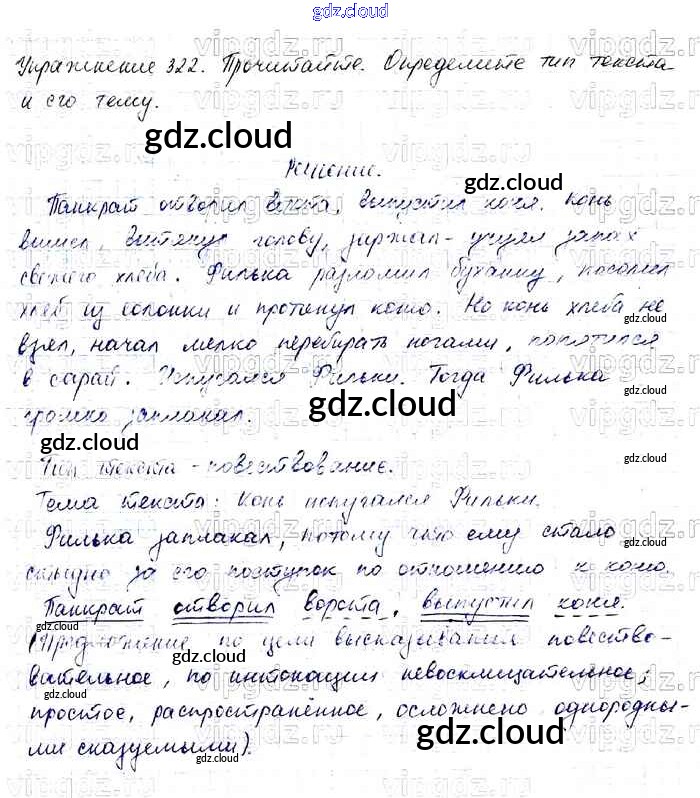 gdz.cloud
Упражнение 322. Прочитайте. Определите тип текста
и его тему.
gdz.cloud
Решение.
gdz.cloud
Панкрат отворил ворота, выпустил коня. Конь
вышел, вытянул голову, заржал - учуял запах
свежего хлеба. Филька разломил буханку, посолил
хлеб из солонки и протянул коню. Но конь хлеба не
gdz.cloud
взял, начал мелко перебирать ногами, попятился
в сарай. Испугался Фильки. Тогда Филька
gdz.cloud
громко заплакал.
gdz.cloud
gdz.cloud
Тип текста - повествование.
gdz.cloud
Тема текста: Конь испугался Фильки.
Филька заплакал, потому что ему стало
gdz.cloud
стыдно за его поступок по отношению к коню.
Панкрат отворил ворота, выпустил коня.
gdz.cloud
(Предложение по цели высказывания повество-
gdz.cloud
вательное, по интонации невосклицательное,
gdz.cloud
простое, распространённое, осложнено однородны-
gdz.cloud
ми сказуемыми).
gdz.cloud